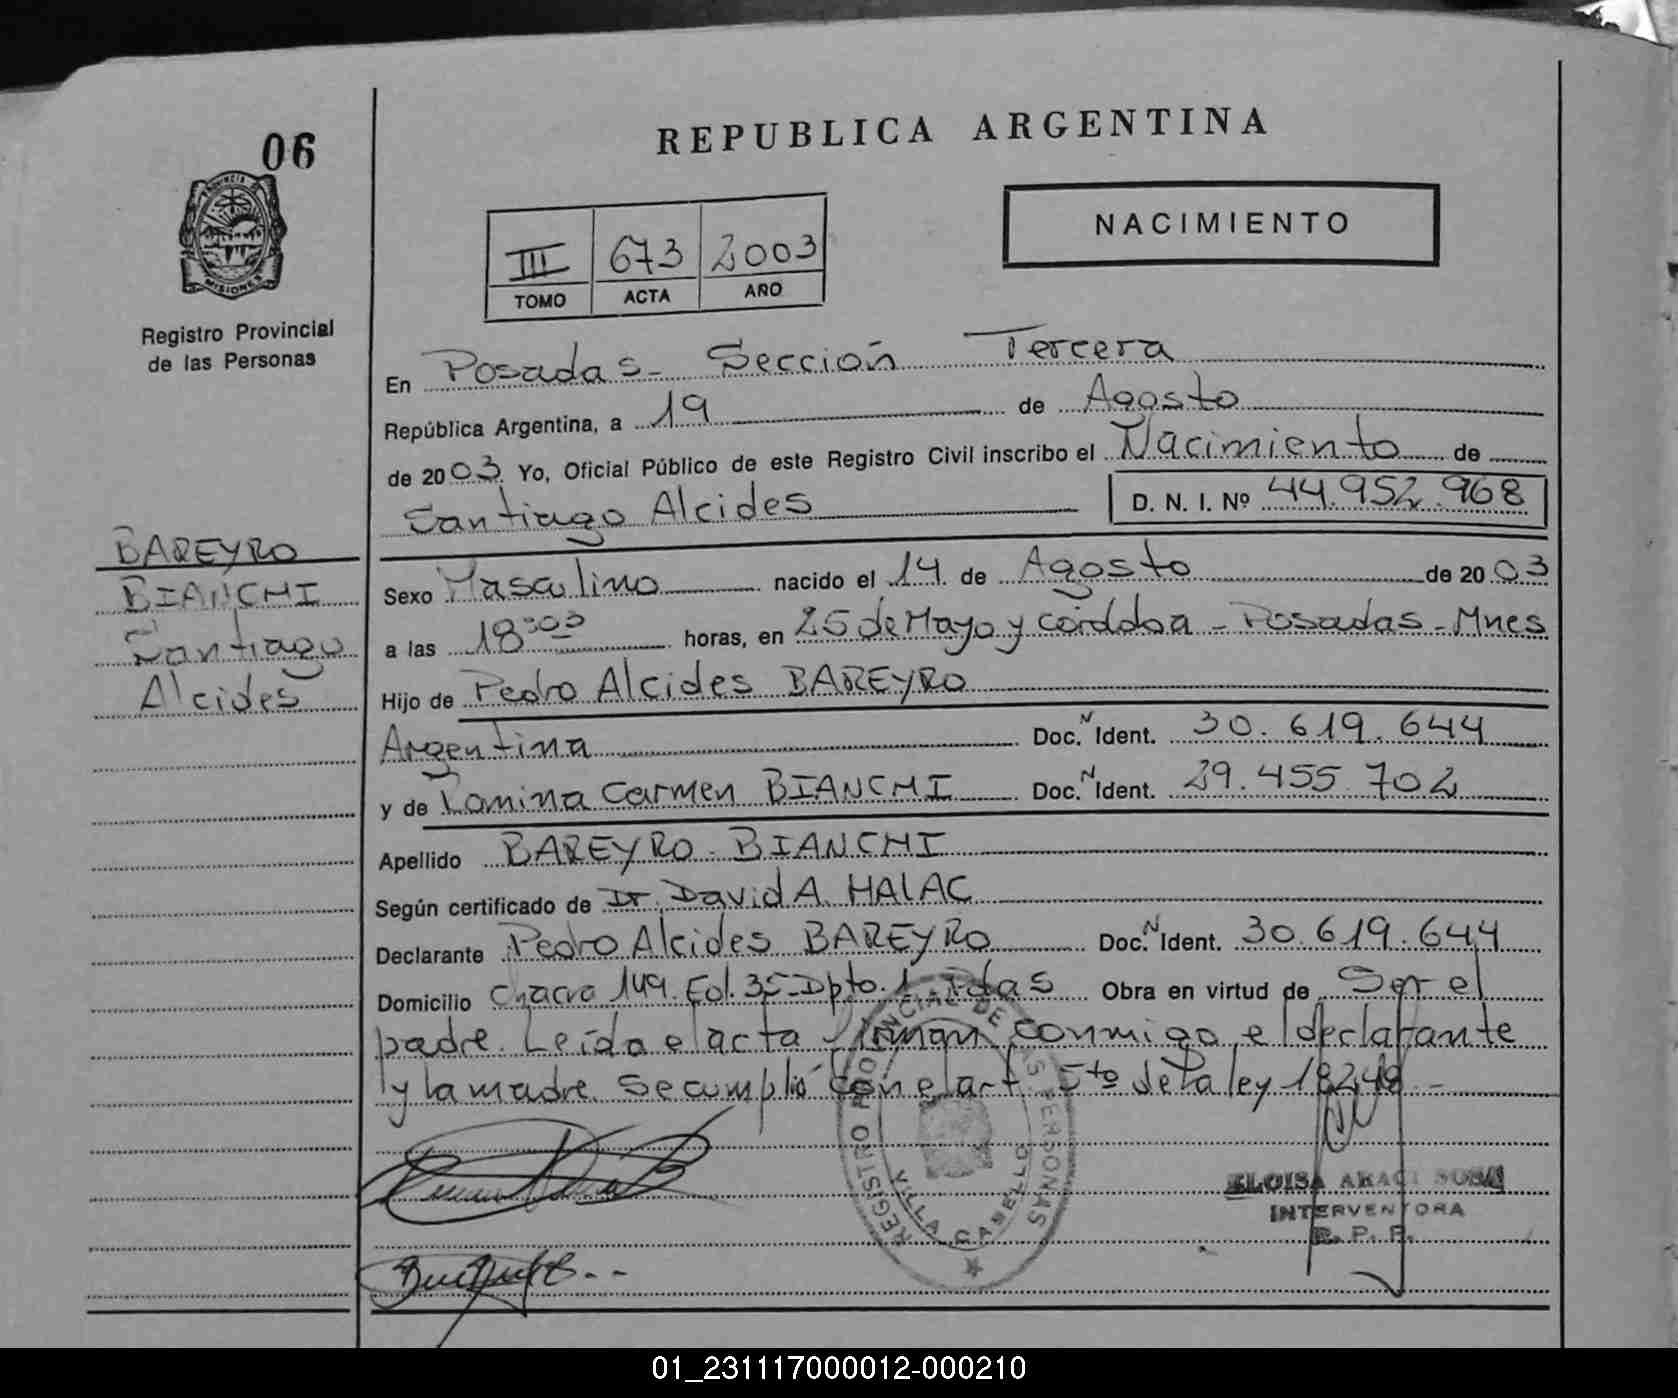 06
PROVINCIA DE
MISIONES
Registro Provincial
de las Personas
REPUBLICA ARGENTINA
NACIMIENTO
III 673 2003
TOMO ACTA AÑO
En Posadas - Sección Tercera
República Argentina, a 19 de Agosto
de 2003 Yo, Oficial Público de este Registro Civil inscribo el Nacimiento de
Santiago Alcides D. N. I. Nº 44.952.968
BAREYRO
BIANCHI
Santiago
Alcides
Sexo Masculino nacido el 14 de Agosto de 2003
a las 18:03 horas, en 25 de Mayo y córdoba - Posadas - Mnes
Hijo de Pedro Alcides BAREYRO
Argentina Doc. N Ident. 30.619.644
y de Romina Carmen BIANCHI Doc. N Ident. 29.455.702
Apellido BAREYRO BIANCHI
Según certificado de Dr. David A. HALAC
Declarante Pedro Alcides BAREYRO Doc. N Ident. 30.619.644
Domicilio Chacra 149. Ed. 35-Dpto. 1 Pdas Obra en virtud de Ser el
padre. Leída el acta firman conmigo el declarante
y la madre. Se cumplió con el art. 5to de la ley 18248 -
REGISTRO PROVINCIAL DE LAS PERSONAS
VILLA CABELLO
ELOISA ARACI SOSA
INTERVENTORA
R. P. P.
01_231117000012-000210